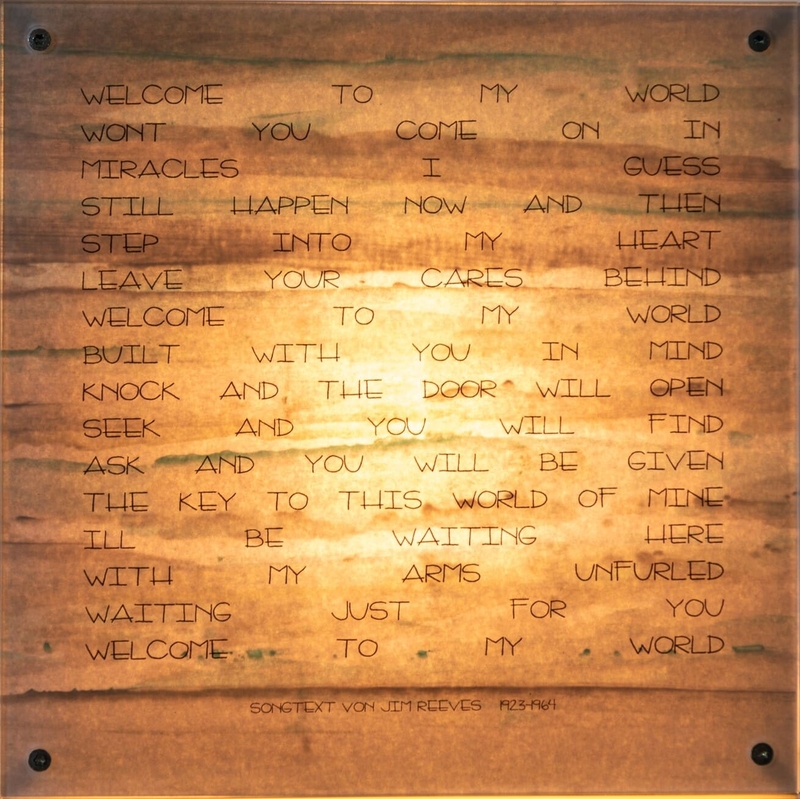 WELCOME TO MY WORLD
WONT YOU COME ON IN
MIRACLES I GUESS
STILL HAPPEN NOW AND THEN
STEP INTO MY HEART
LEAVE YOUR CARES BEHIND
WELCOME TO MY WORLD
BUILT WITH YOU IN MIND
KNOCK AND THE DOOR WILL OPEN
SEEK AND YOU WILL FIND
ASK AND YOU WILL BE GIVEN
THE KEY TO THIS WORLD OF MINE
ILL BE WAITING HERE
WITH MY ARMS UNFURLED
WAITING JUST FOR YOU
WELCOME TO MY WORLD
SONGTEXT VON JIM REEVES 1923-1964